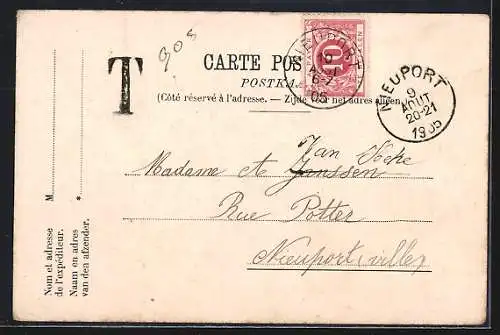 T
908
CARTE POS
POSTKA
(Côté réservé à l'adresse. — Zijde voor het adres alleen.)
NIEUPORT
10
05
NIEUPORT
9
AOUT
20-21
1905
Van
Madame Janssen
Rue Potter
Nieuport (ville)
M
Nom et adresse
de l'expéditeur.
Naam en adres
van den afzender.